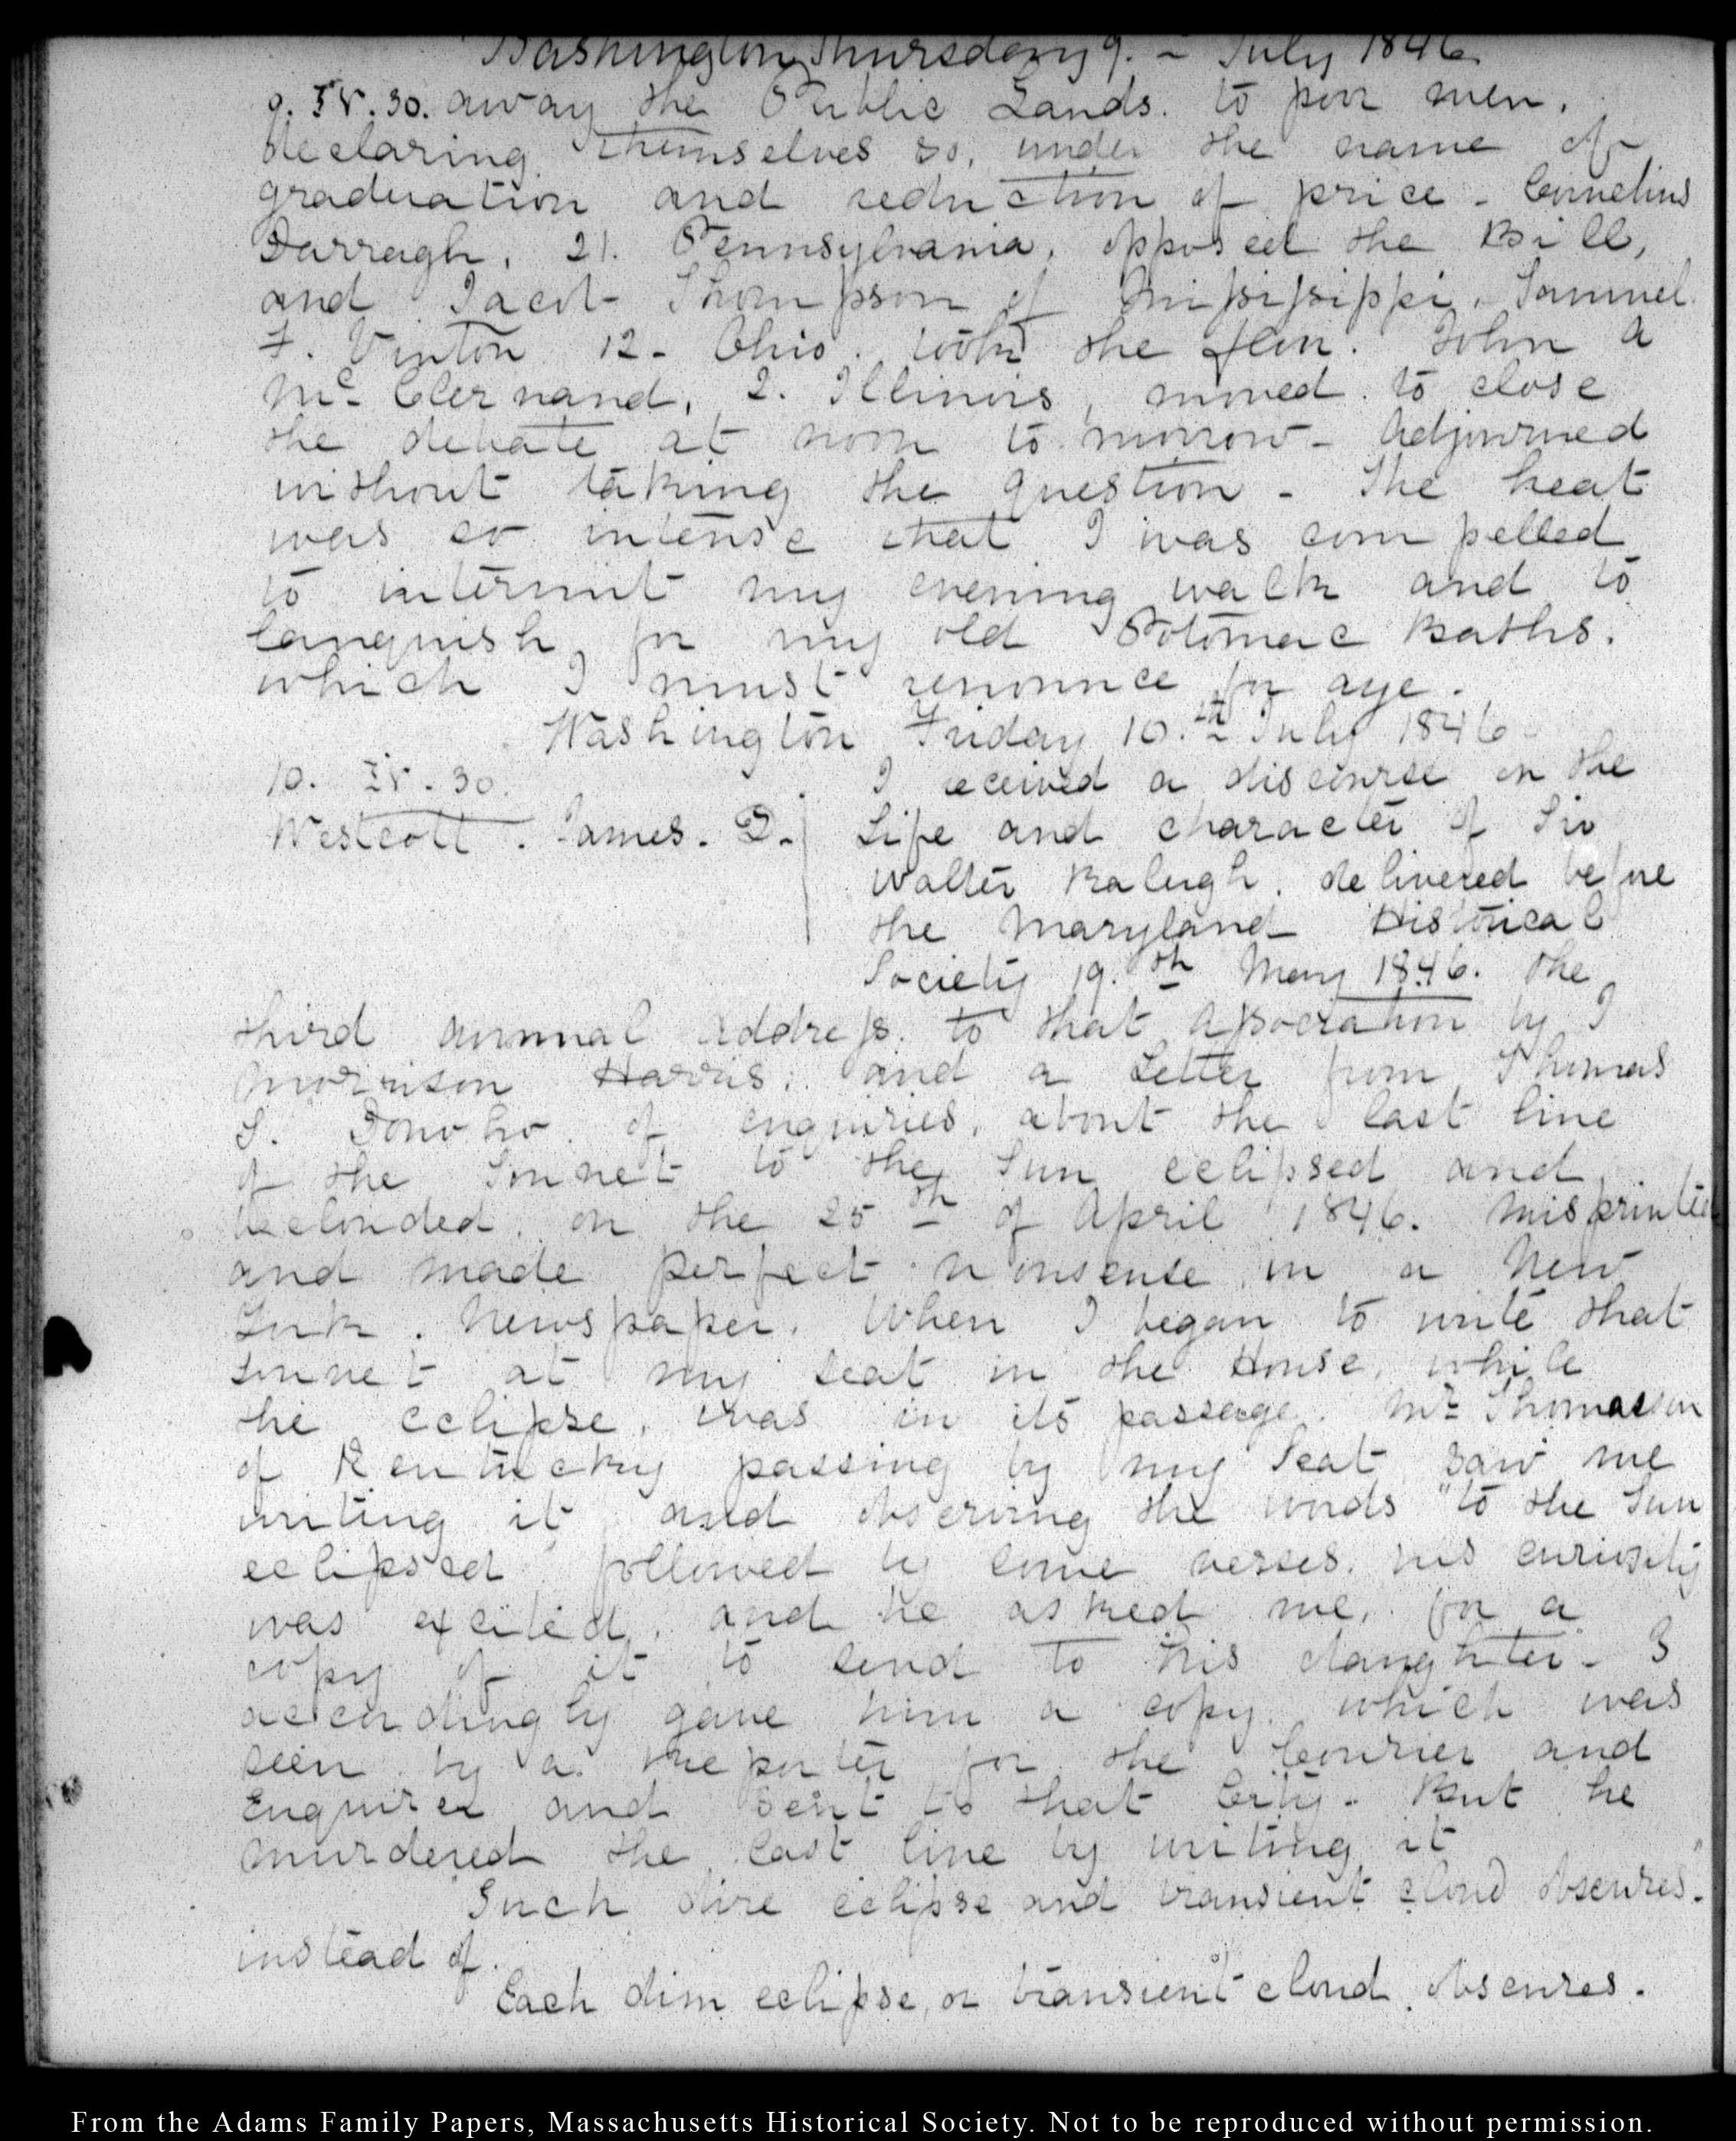 Washington Thursday 9. - July 1846.
9. IV. 30. away the Public Lands. to poor men.
declaring themselves so, under the name of
graduation and reduction of price - Cornelius
Darragh, 21. Pennsylvania, opposed the Bill,
and Jacob Thompson of Mississippi, Samuel
F. Vinton 12 - Ohio. took the floor. John A
McClernand, 2. Illinois, moved to close
the debate at noon to morrow - Adjourned
without taking the question - The heat
was so intense that I was compelled
to intermit my evening walk and to
languish for my old Potomac Baths.
which I must renounce for aye.
Washington Friday 10.th July 1846.
10. IV. 30.
Westcott. James. D.
I received a discourse on the
Life and character of Sir
Walter Raleigh. delivered before
the Maryland Historical
Society 19.th May 1846. the
third annual address. to that Association by J
Morrison Harris, and a Letter from Thomas
S. Donoho. of enquiries, about the last line
of the Sonnet to the Sun eclipsed and
beclouded, on the 25th of April 1846. misprinted
and made perfect nonsense in a New
York. Newspaper. When I began to write that
sonnet at my seat in the House, while
the eclipse, was in its passage. Mr Thomasson
of Kentucky passing by my Seat saw me
writing it and observing the words "to the Sun
eclipsed followed by some verses, his curiosity
was excited, and he asked me, for a
copy of it to send to his daughter - I
accordingly gave him a copy. which was
seen by a Reporter for the Courier and
Enquirer and sent to that City - But he
murdered the last line by writing it
Such dire eclipse and transient cloud obscures."
instead of.
Each dim eclipse, or transient cloud, obscures.
From the Adams Family Papers, Massachusetts Historical Society. Not to be reproduced without permission.